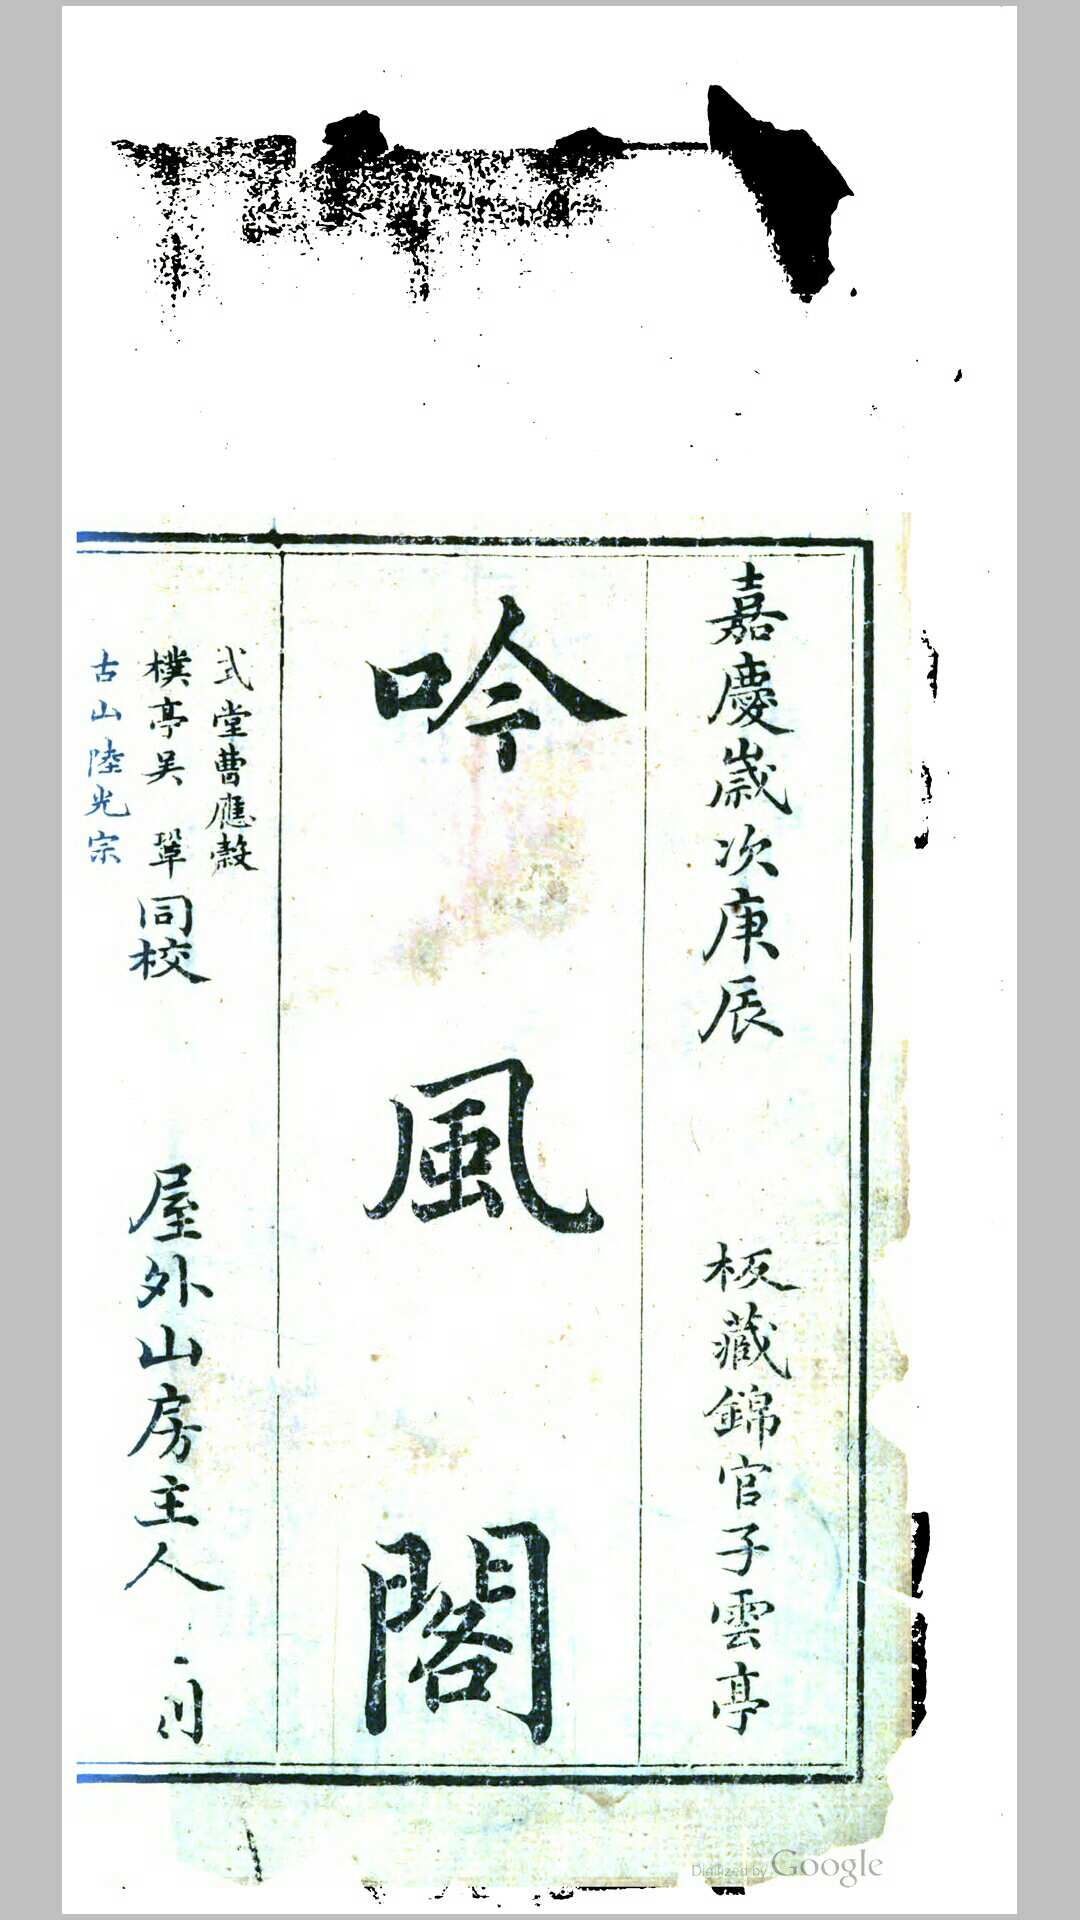 嘉慶歲次庚辰
板藏錦官子雲亭
吟風閣
式堂曹應穀
樸亭吴 鞏
古山陸光宗
同校
屋外山房主人
Digitized by Google